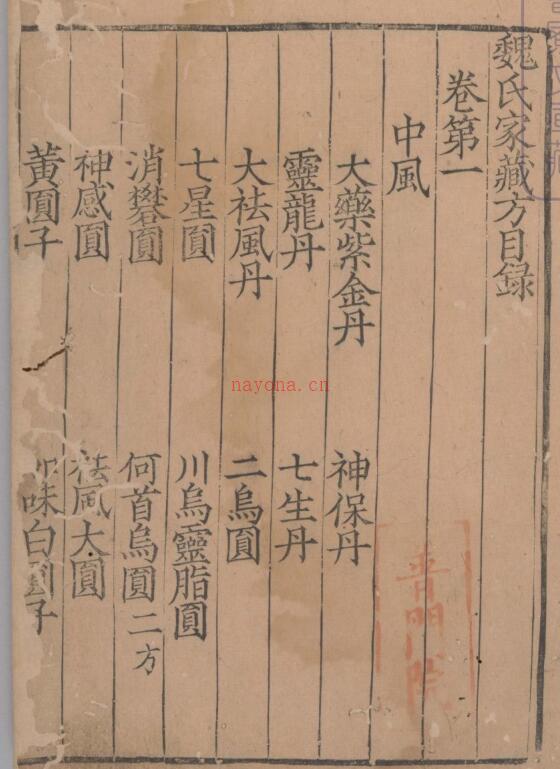 魏氏家藏方目録
卷第一
中風
大藥紫金丹 神保丹
靈龍丹 七生丹
大祛風丹 二烏圓
七星圓 川烏靈脂圓
消礬圓 何首烏圓二方
神感圓 祛風大圓
黃圓子 味白圓子
nayona.cn
普門院